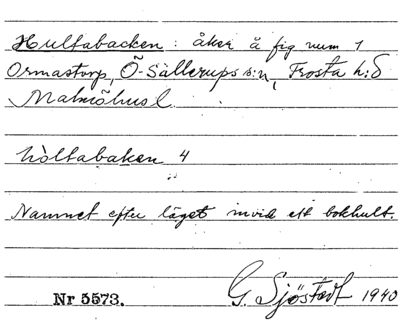 Hultabacken: åker å fig num 1
Ormastorp, Ö-Sallerups s:n, Frosta h:d
Malmöhus l.
hòltabaken 4
Namnet efter läget invid ett bokhult.
Nr 5573. G. Sjöstedt 1940